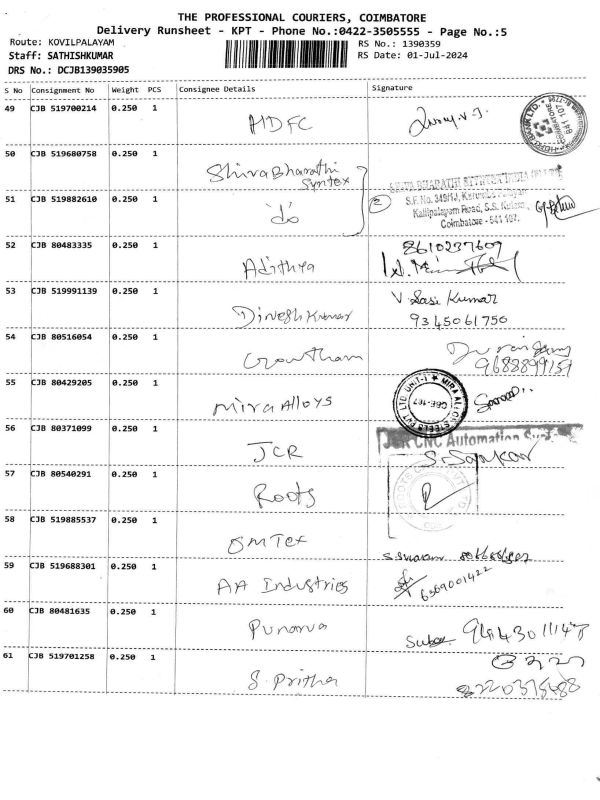 THE PROFESSIONAL COURIERS, COIMBATORE
Delivery Runsheet - KPT - Phone No.:0422-3505555 - Page No.:5
Route: KOVILPALAYAM RS No.: 1390359
Staff: SATHISHKUMAR RS Date: 01-Jul-2024
DRS No.: DCJB139035905
S No Consignment No Weight PCS Consignee Details Signature
49 CJB 519700214 0.250 1 HDFC
50 CJB 519680758 0.250 1 Shiva Bharathi
Syntex
51 CJB 519882610 0.250 1 do 2
S.F. No. 349/1J,
Kallipalayam Road, S.S. Kulam,
Coimbatore - 641 107.
52 CJB 80483335 0.250 1 Adithya 8610237609
53 CJB 519991139 0.250 1 Dinesh Kumar V Sasi Kumar
9345061750
54 CJB 80516054 0.250 1 Gowtham
9688899159
55 CJB 80429205 0.250 1 Mira Alloys MIRA ALLOY STEELS PVT LTD UNIT-I CBE-107
56 CJB 80371099 0.250 1 JCR JCR CNC Automation
57 CJB 80540291 0.250 1 Roots ROOTS
58 CJB 519885537 0.250 1 SM Tex
59 CJB 519688301 0.250 1 AA Industries 6369001422
60 CJB 80481635 0.250 1
61 CJB 519701258 0.250 1 S. Pritha